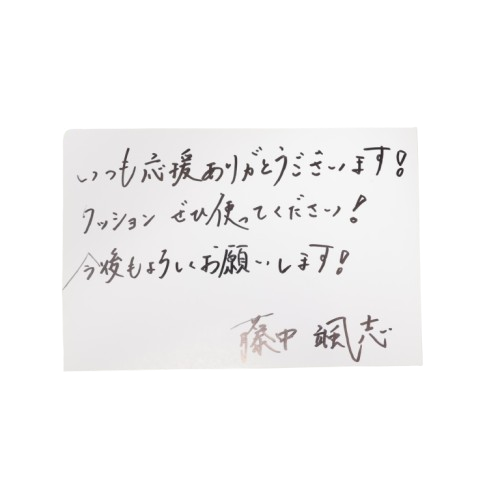 いつも応援ありがとうございます!
クッション ぜひ使ってください!
今後もよろしくお願いします!
藤中 颯志